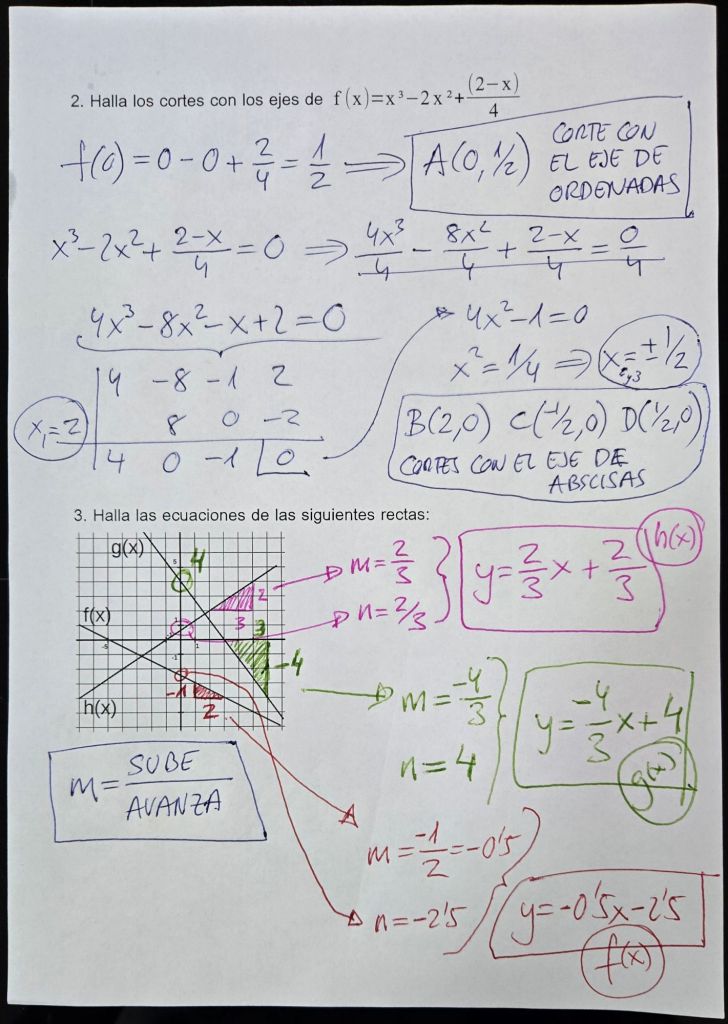 2. Halla los cortes con los ejes de f(x)=x³−2x²+(2−x)/4
f(0) = 0 − 0 + 2/4 = 1/2 ⟹ A(0, 1/2) CORTE CON
EL EJE DE
ORDENADAS
x³−2x²+ (2−x)/4 = 0 ⟹ 4x³/4 − 8x²/4 + (2−x)/4 = 0/4
4x³−8x²−x+2=0
4 −8 −1 2
x₁=2 8 0 −2
4 0 −1 0
4x²−1=0
x²=1/4 ⟹ x₂ᵧ₃=±1/2
B(2,0) C(−1/2,0) D(1/2,0)
CORTES CON EL EJE DE
ABSCISAS
3. Halla las ecuaciones de las siguientes rectas:
g(x)
f(x)
h(x)
5
-5
-1
1
4
2
3
3
-4
-1
2
m=2/3
n=2/3
y=2/3x+2/3
h(x)
m=-4/3
n=4
y=-4/3x+4
g(x)
m= SUBE/AVANZA
m=-1/2=-0'5
n=-2'5
y=-0'5x-2'5
f(x)